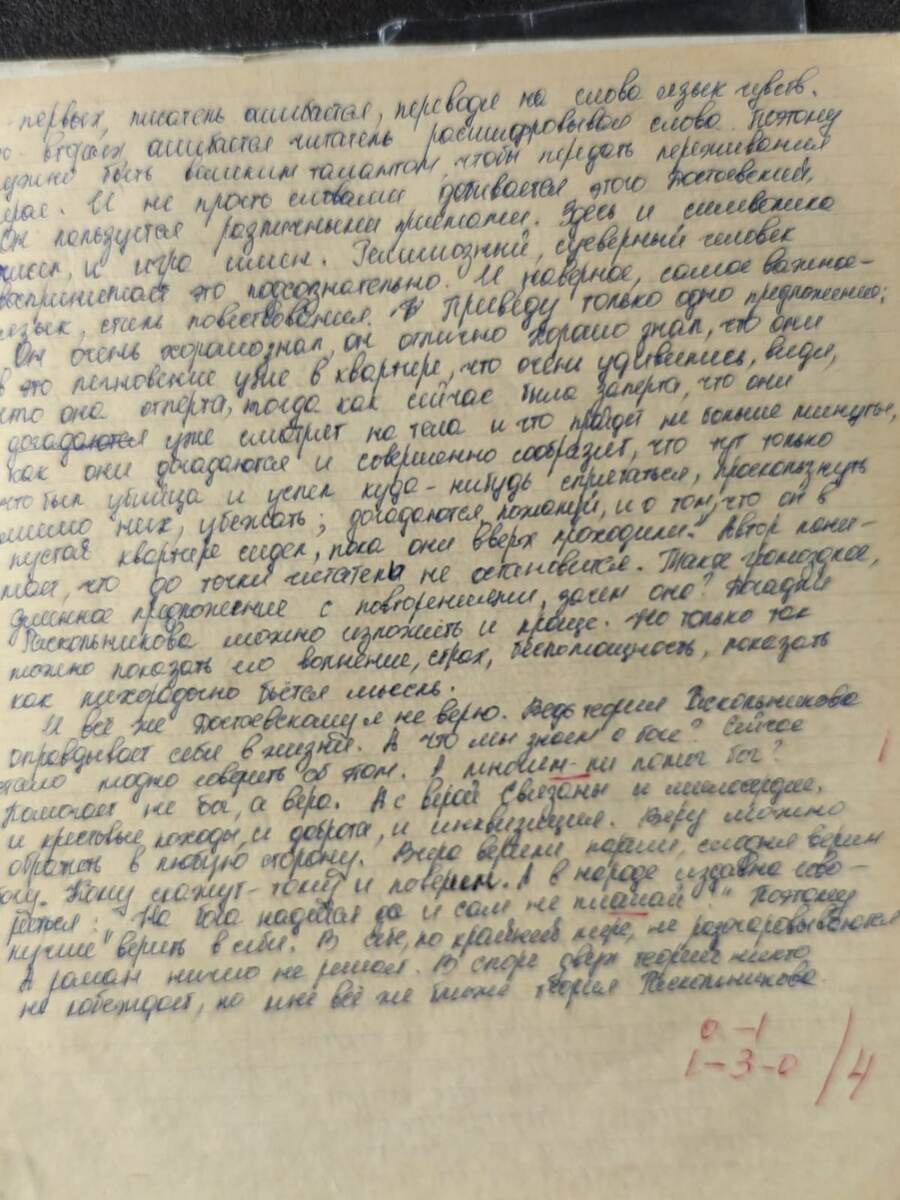 первых, писатель ошибается, переводя на слова язык чувств.
вторых ошибается читатель расшифровывая слова. Поэтому
нужно быть великим талантом, чтобы передать переживания
героя. И не просто словами добивается этого Достоевский,
Он пользуется различными приёмами. Здесь и символика
чисел, и игра имён. Религиозный, суеверный человек
воспринимает это подсознательно. И наверное, самое важное-
язык, стиль повествования. Приведу только одно предложение:
Он очень хорошо знал, он отлично хорошо знал, что они
в это мгновение уже в квартире, что очень удивились, видя,
что она отперта, тогда как сейчас была заперта, что они
догадаются уже смотрят на тела и что пройдёт не больше минуты,
как они догадаются и совершенно сообразят, что тут только
что был убийца и успел куда-нибудь спрятаться, проскользнуть
мимо них, убежать; догадаются, пожалуй, и о том, что он в
пустой квартире сидел, пока они вверх проходили." Автор пони-
мал, что до точки читатель не остановится. Такое громоздкое,
длинное предложение с повторениями, зачем оно? Догадки
Раскольникова можно изложить и проще. Но только так
можно показать его волнение, страх, беспомощность, показать
как лихорадочно бьётся мысль.
И всё же Достоевскому я не верю. Ведь теория Раскольникова
оправдывает себя в жизни. А что мы знаем о боге? Сейчас
стало модно говорить об этом. А многим-ли помог бог?
Помогает не бог, а вера. А с верой связаны и милосердие,
и крестовые походы, и доброта, и инквизиция. Веру можно
обратить в любую сторону. Вчера верили партии, сегодня верим
богу. Кому скажут - тому и поверим. А в народе издавна гово-
рится: "На бога надейся да и сам не плашай!" Поэтому
лучше верить в себя. В себе, по крайней мере, не разочаровываются
А роман ничего не решает. В споре двух теорий никто
не побеждает, но мне всё же ближе теория Раскольникова.
0 - 1
1 - 3 - 0 / 4